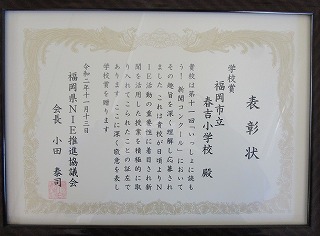 表彰状
学校賞
福岡市立
春吉小学校 殿
貴校は第十一回「いっしょに読も
う!新聞コンクール」において
その趣旨を深く理解し応募され
ました これは貴校が日頃よりN
IE活動の重要性に着目され新
聞を活用した授業を積極的に取
り入れてこられたことの証左で
あります ここに深く敬意を表し
学校賞を贈ります
令和二年十一月十三日
福岡県NIE推進協議会
会長 小田 泰司